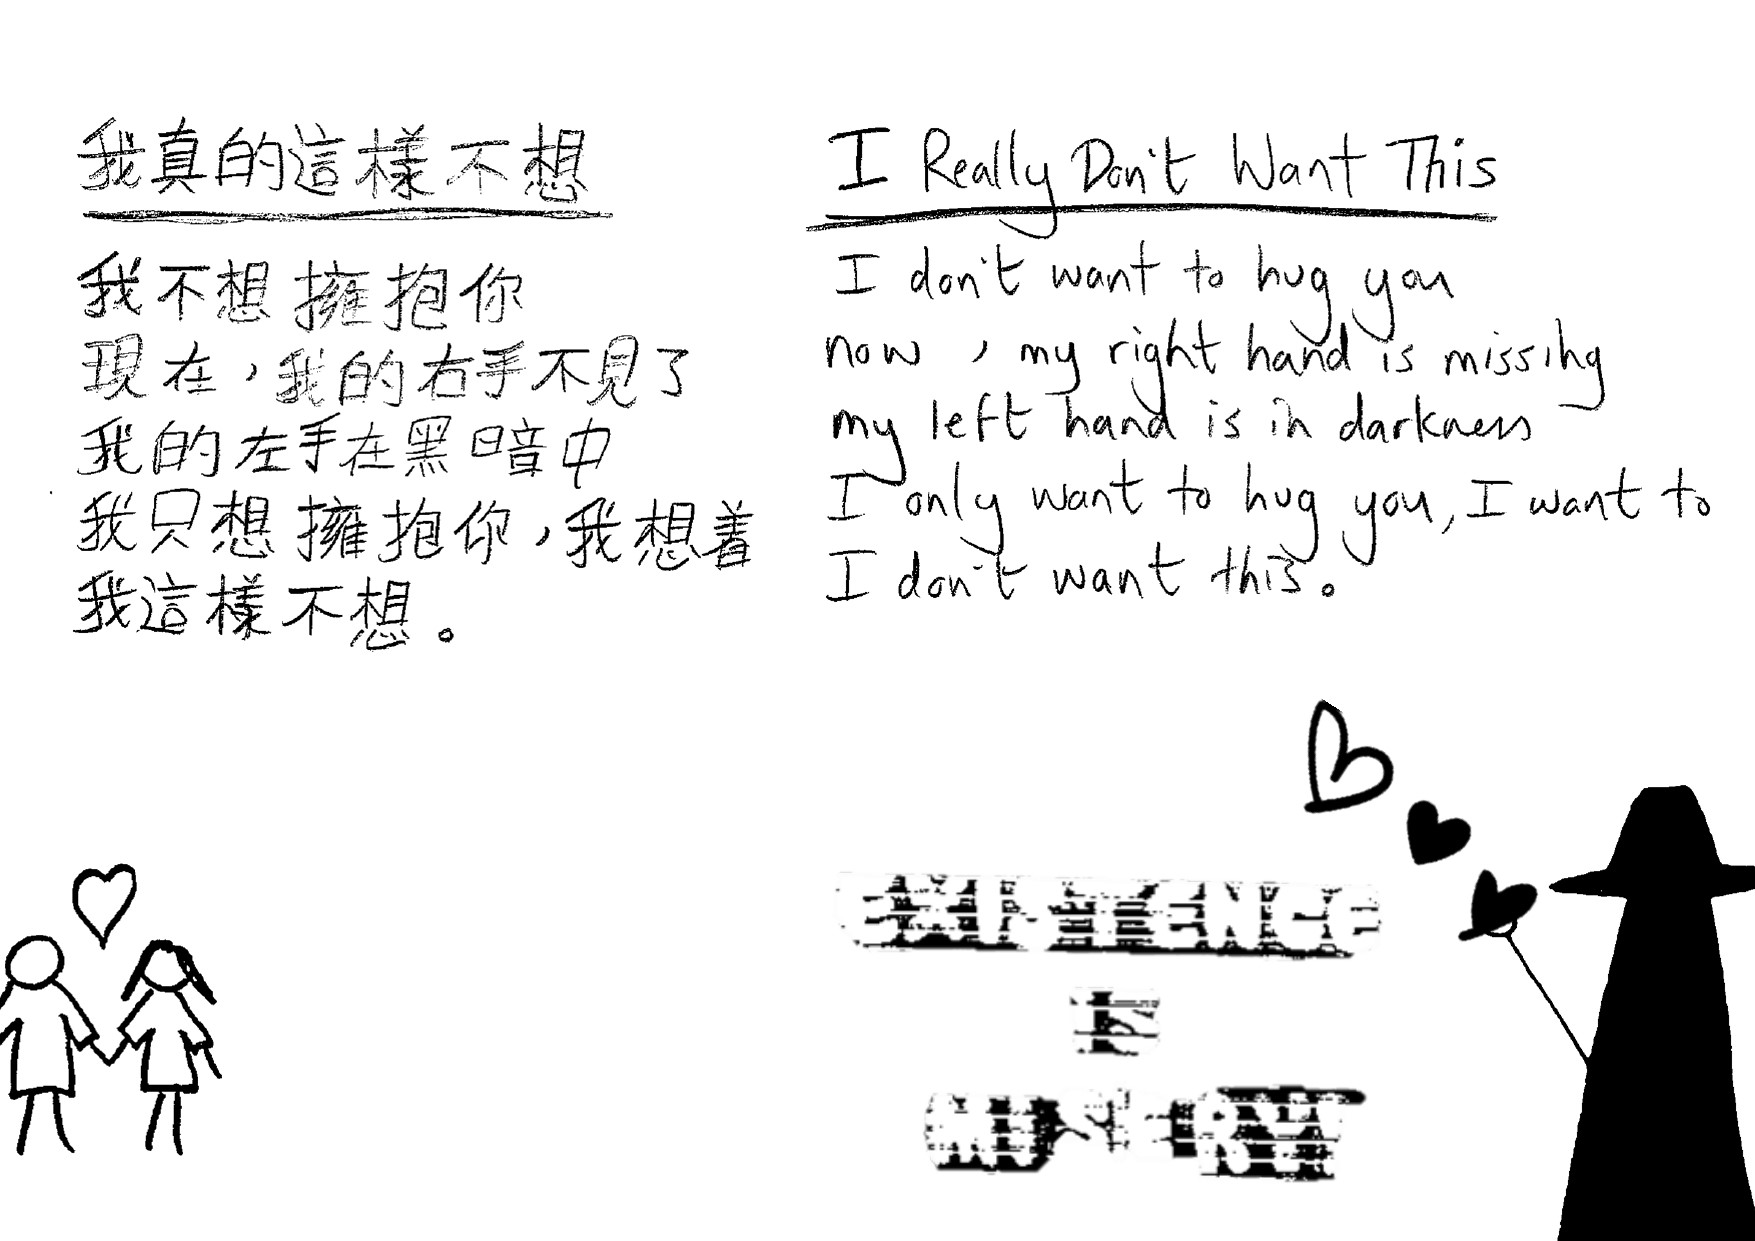 我真的這樣不想
我不想擁抱你
現在，我的右手不見了
我的左手在黑暗中
我只想擁抱你，我想着
我這樣不想。
I Really Don't Want This
I don't want to hug you
now, my right hand is missing
my left hand is in darkness
I only want to hug you, I want to
I don't want this.